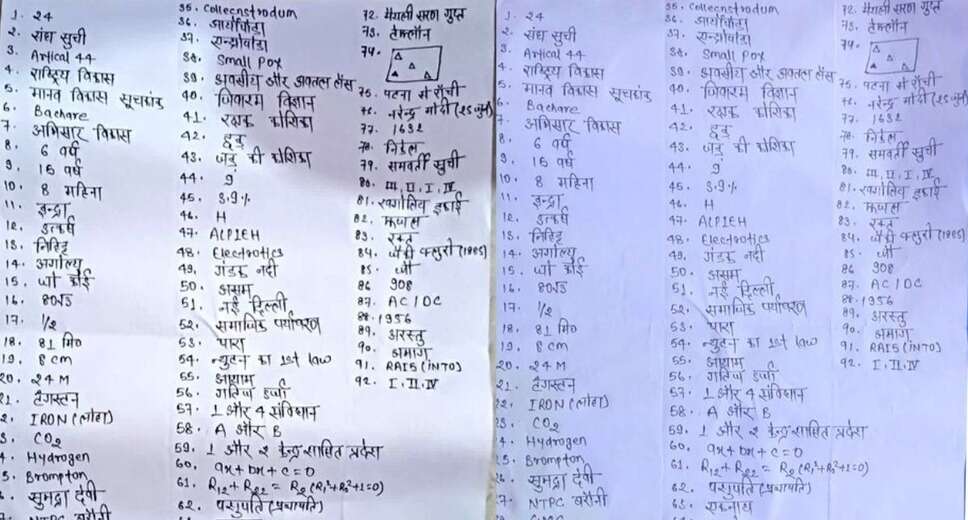 1. 24
2. संघ सुची
3. Artical 44
4. राष्ट्रिय विकास
5. मानव विकास सूचकांक
6. Bachare
7. अभिसार विकास
8. 6 वर्ष
9. 16 वर्ष
10. 8 महिना
11. इन्द्रा
12. उत्कर्ष
13. निहिट्ट
14. अर्गाल्य
15. जो कोई
16.
17. 1/2
18. 81 मि०
19. 8 cm
20. 24 M
21. टंगस्टन
2. IRON (लोहा)
3. CO2
4. Hydrogen
5. Brompton
सुमद्रा देवी
7. NTPC बरौनी
35. Collenctrodum
36.
37. एन्थ्रोपोडा
38. Small Pox
39. अवतलीय और अवतल लेंस
40. जिवाश्म विज्ञान
41. रक्षक कोशिका
42. हृदु
43. जंतु की कोशिका
44. 9
45. 3.9%
46. H
47. ALPIEH
48. Electrotics
49. गंडक नदी
50. असम
51. नई दिल्ली
52. समाजिक पर्यावरण
53. पारा
54. न्युटन का 1st law
55. आयाम
56. गतिज उर्जा
57. 1 और 4 संविधान
58. A और B
59. 1 और 2 केन्द्र साषित प्रदेश
60. ax+bx+c=0
61. R12+R22 = R2(R1²+R2²+1=0)
62. पसुपति (प्रधापति)
72. मैथली सरण गुप्त
73. टेफ्लॉन
74.
75. पटना से राँची
76. नरेन्द्र मोदी (25 जुन)
77. 1632
78. निकेल
79. समवर्ती सुची
80. III, II, I, IV
81. खगोलिय इकाई
82. कपाल
83. रक्त
84. चैती फ्लुरी (1885)
85. जौ
86 908
87. AC/DC
88. 1956
89. अरस्तु
90. अमाग
91. RAIS (INTO)
92. I, II, IV
1. 24
2. संघ सुची
3. Artical 44
4. राष्ट्रिय विकास
5. मानव विकास सूचकांक
6. Bachare
7. अभिसार विकास
8. 6 वर्ष
9. 16 वर्ष
10. 8 महिना
11. इन्द्रा
12. उत्कर्ष
13. निहिट्ट
14. अर्गाल्य
15. जो कोई
16.
17. 1/2
18. 81 मि०
19. 8 cm
20. 24 M
21. टंगस्टन
2. IRON (लोहा)
3. CO2
4. Hydrogen
5. Brompton
सुमद्रा देवी
7. NTPC बरौनी
35. Collenctrodum
36.
37. एन्थ्रोपोडा
38. Small Pox
39. अवतलीय और अवतल लेंस
40. जिवाश्म विज्ञान
41. रक्षक कोशिका
42. हृदु
43. जंतु की कोशिका
44. 9
45. 3.9%
46. H
47. ALPIEH
48. Electrotics
49. गंडक नदी
50. असम
51. नई दिल्ली
52. समाजिक पर्यावरण
53. पारा
54. न्युटन का 1st law
55. आयाम
56. गतिज उर्जा
57. 1 और 4 संविधान
58. A और B
59. 1 और 2 केन्द्र साषित प्रदेश
60. ax+bx+c=0
61. R12+R22 = R2(R1²+R2²+1=0)
62. पसुपति (प्रधापति)
63. एकनाथ
72. मैथली सरण गुप्त
73. टेफ्लॉन
74.
75. पटना से राँची
76. नरेन्द्र मोदी (25 जुन)
77. 1632
78. निकेल
79. समवर्ती सुची
80. III, II, I, IV
81. खगोलिय इकाई
82. कपाल
83. रक्त
84. चैती फ्लुरी (1885)
85. जौ
86 908
87. AC/DC
88. 1956
89. अरस्तु
90. अमाग
91. RAIS (INTO)
92. I, II, IV